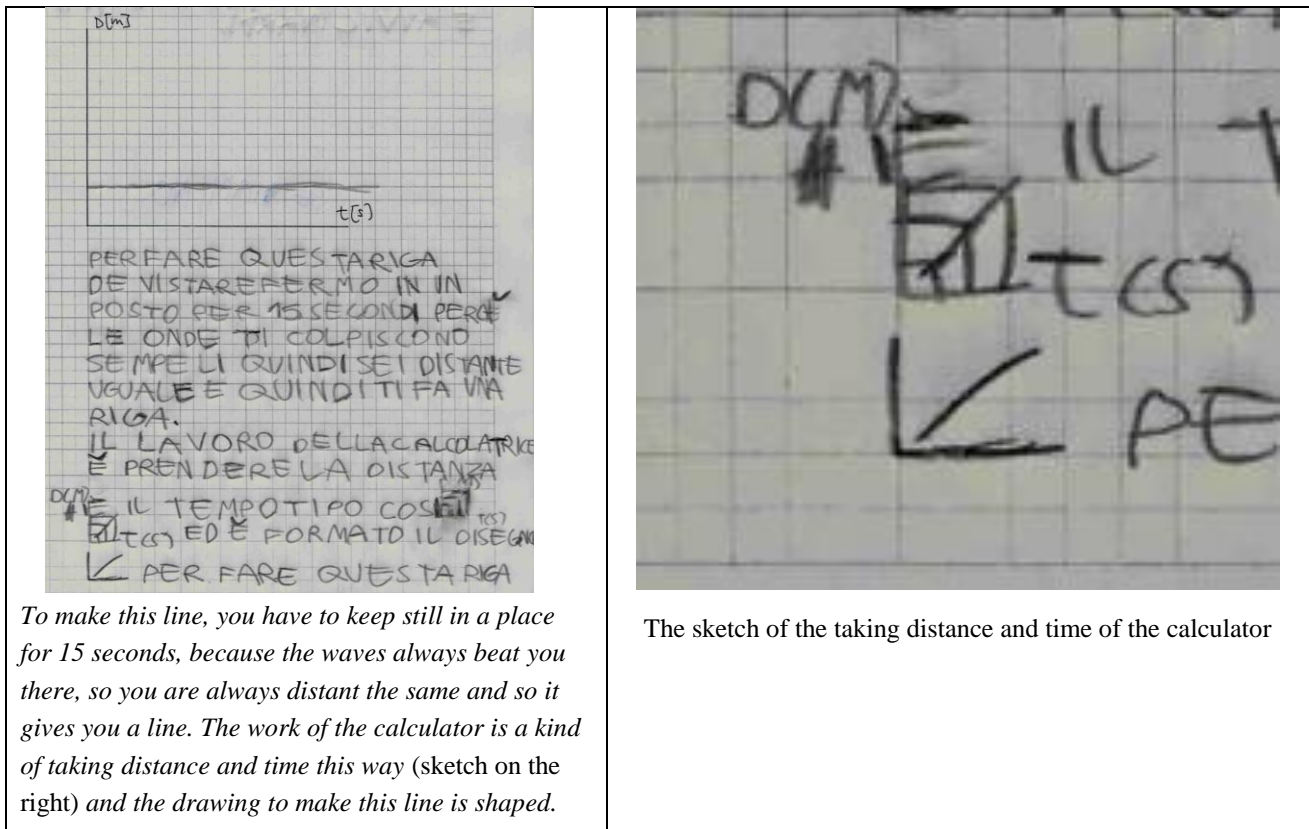 D[m]
t[s]
PER FARE QUESTA RIGA
DEVI STARE FERMO IN IN
POSTO PER 15 SECONDI PERCĔ
LE ONDE TI COLPISCONO
SEMPE LI QUINDI SEI DISTANTE
UGUALE E QUINDI TI FA UNA
RIGA.
IL LAVORO DELLA CALCOLATRICE
È PRENDERE LA DISTANZA
D(M) E IL TEMPO TIPO COSÌ
T(S) ED È FORMATO IL DISEGNO
PER FARE QUESTA RIGA
To make this line, you have to keep still in a place
for 15 seconds, because the waves always beat you
there, so you are always distant the same and so it
gives you a line. The work of the calculator is a kind
of taking distance and time this way (sketch on the
right) and the drawing to make this line is shaped.
D(M)
E IL T
T(S)
PE
The sketch of the taking distance and time of the calculator